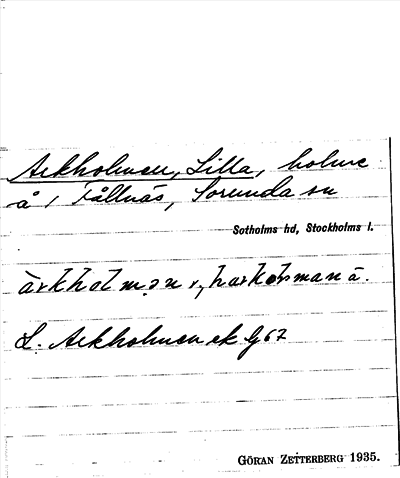 Arkholmen, Lilla, holme
å 1 Fållnäs, Sorunda sn
Sotholms hd, Stockholms l.
àrkhalmən r, harkoƚsmana.
L. Arkholmen ek G 67
GÖRAN ZETTERBERG 1935.